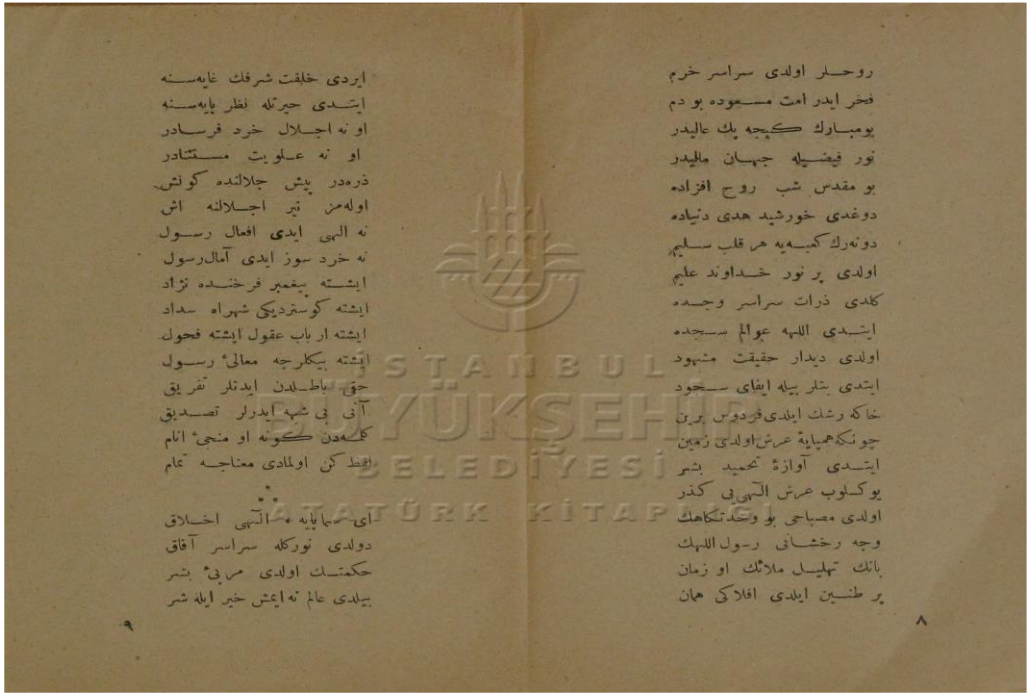 روحلر اولدی سراسر خرم
فخر ایدر امت مسعوده بو دم
بومبارك كیجه پك عالیدر
نور فیضیله جهان مالیدر
بو مقدس شب روح افزاده
دوغدی خورشید هدی دنیاده
دونه‌رك كعبه‌یه هر قلب سلیم
اولدی پر نور خداوند علیم
كلدی ذرات سراسر وجده
ایتدی اللهه عوالم سجده
اولدی دیدار حقیقت مشهود
ایتدی بتلر بیله ایفای سجود
خاكه رشك ایلدی فردوس برین
چونكه همپایهٔ عرش اولدی زمین
ایتدی آوازهٔ تحمید بشر
یوكسلوب عرش الهی‌یی كذر
اولدی مصباحی بو وحدتكاهك
وجه رخشانی رسول اللهك
بانك تهلیل ملائك او زمان
پر طنین ایلدی افلاكی همان
٨
ایردی خلقت شرفك غایه‌سنه
ایتدی حیرتله نظر پایه‌سنه
او نه اجلال خرد فرسادر
او نه علویت مستثنادر
ذره‌در پیش جلالنده كونش
اوله‌مز نیر اجلالنه اش
نه الهی ایدی افعال رسول
نه خرد سوز ایدی آمال رسول
ایشته پیغمبر فرخنده نژاد
ایشته كوستردیكی شهراه سداد
ایشته ارباب عقول ایشته فحول
ایشته بیكلرجه معالیٔ رسول
حقی باطلدن ایدنلر تفریق
آنی بی شبهه ایدرلر تصدیق
كلمه‌دن كونه او منجیٔ انام
لفظ كن اولمادی معناجه تمام
* * *
ای سمایایه الهی اخلاق
دولدی نوركله سراسر آفاق
حكمتك اولدی مربیٔ بشر
بیلدی عالم نه ایمش خیر ایله شر
٩
İSTANBUL
BÜYÜKŞEHİR
BELEDİYESİ
ATATÜRK KİTAPLIĞI